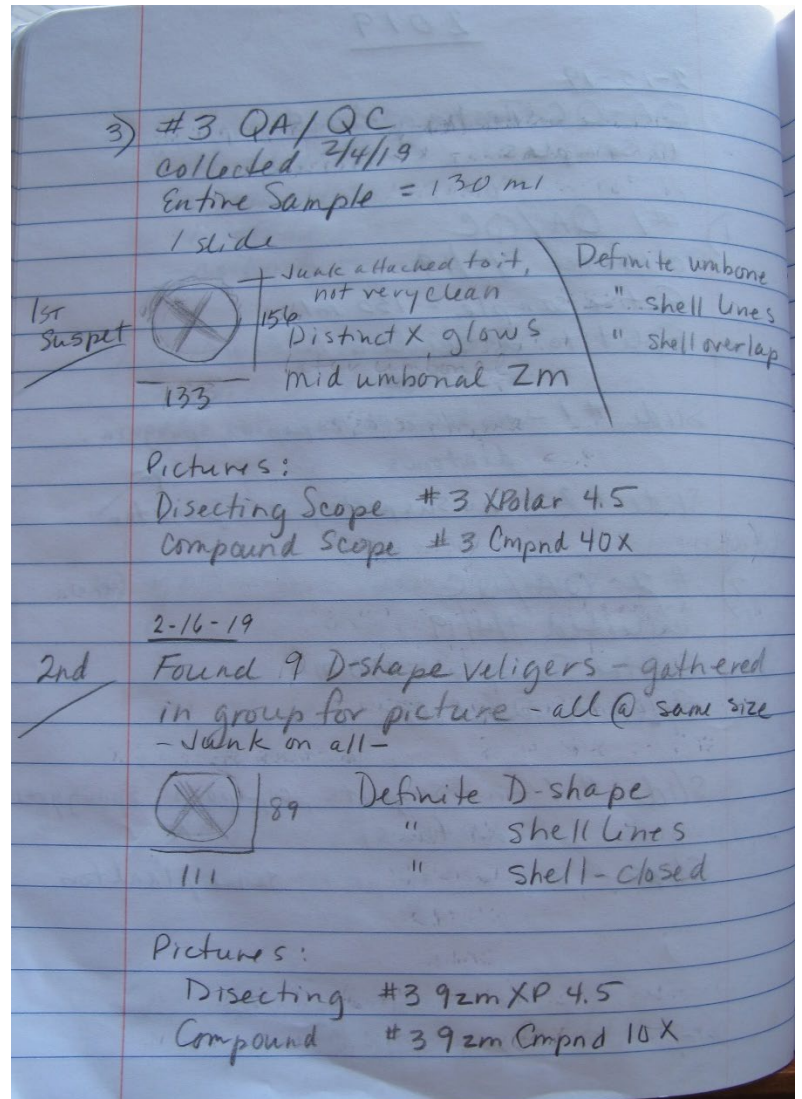 3) #3 QA/QC
collected 2/4/19
Entire Sample = 130 ml
1 slide
1st Suspet
Junk attached to it,
not very clean
156
Distinct X glows
mid umbonal Zm
133
Definite umbone
" shell lines
" shell overlap
Pictures:
Disecting Scope #3 XPolar 4.5
Compound Scope #3 Cmpnd 40X
2-16-19
2nd Found 9 D-shape veligers - gathered
in group for picture - all @ same size
- Junk on all -
89
111
Definite D-shape
" shell lines
" shell-closed
Pictures:
Disecting #3 9zm XP 4.5
Compound #3 9zm Cmpnd 10X